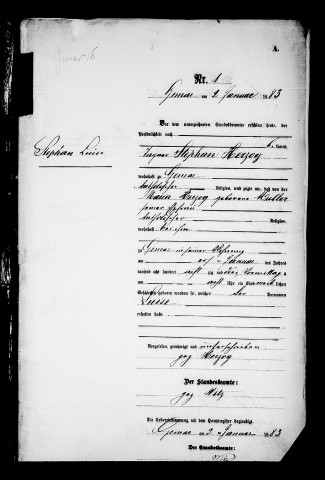 A.
Nr. 1
Gemar am 2 Januar 1883
Vor dem unterzeichneten Standesbeamten erschien heute, der
Persönlichkeit nach
kannt,
Stephan Luise
Stephan Herzog
wohnhaft zu Gemar
katholischer Religion, und zeigte an, daß von der
Maria Herzog geborene Müller
seiner Ehefrau
katholischer Religion,
wohnhaft bei ihm
zu Gemar in seiner Wohnung
am Januar des Jahres
tausend acht hundert acht zig und drei Vormittag
um acht Uhr ein Kind weiblichen
Geschlechts geboren worden sei, welches den Vornamen
Luise
erhalten habe
Vorgelesen, genehmigt und unterschrieben
gez Herzog
Der Standesbeamte:
gez
Die Uebereinstimmung mit dem Hauptregister beglaubigt
Gemar am 2 Januar 1883
Der Standesbeamte: